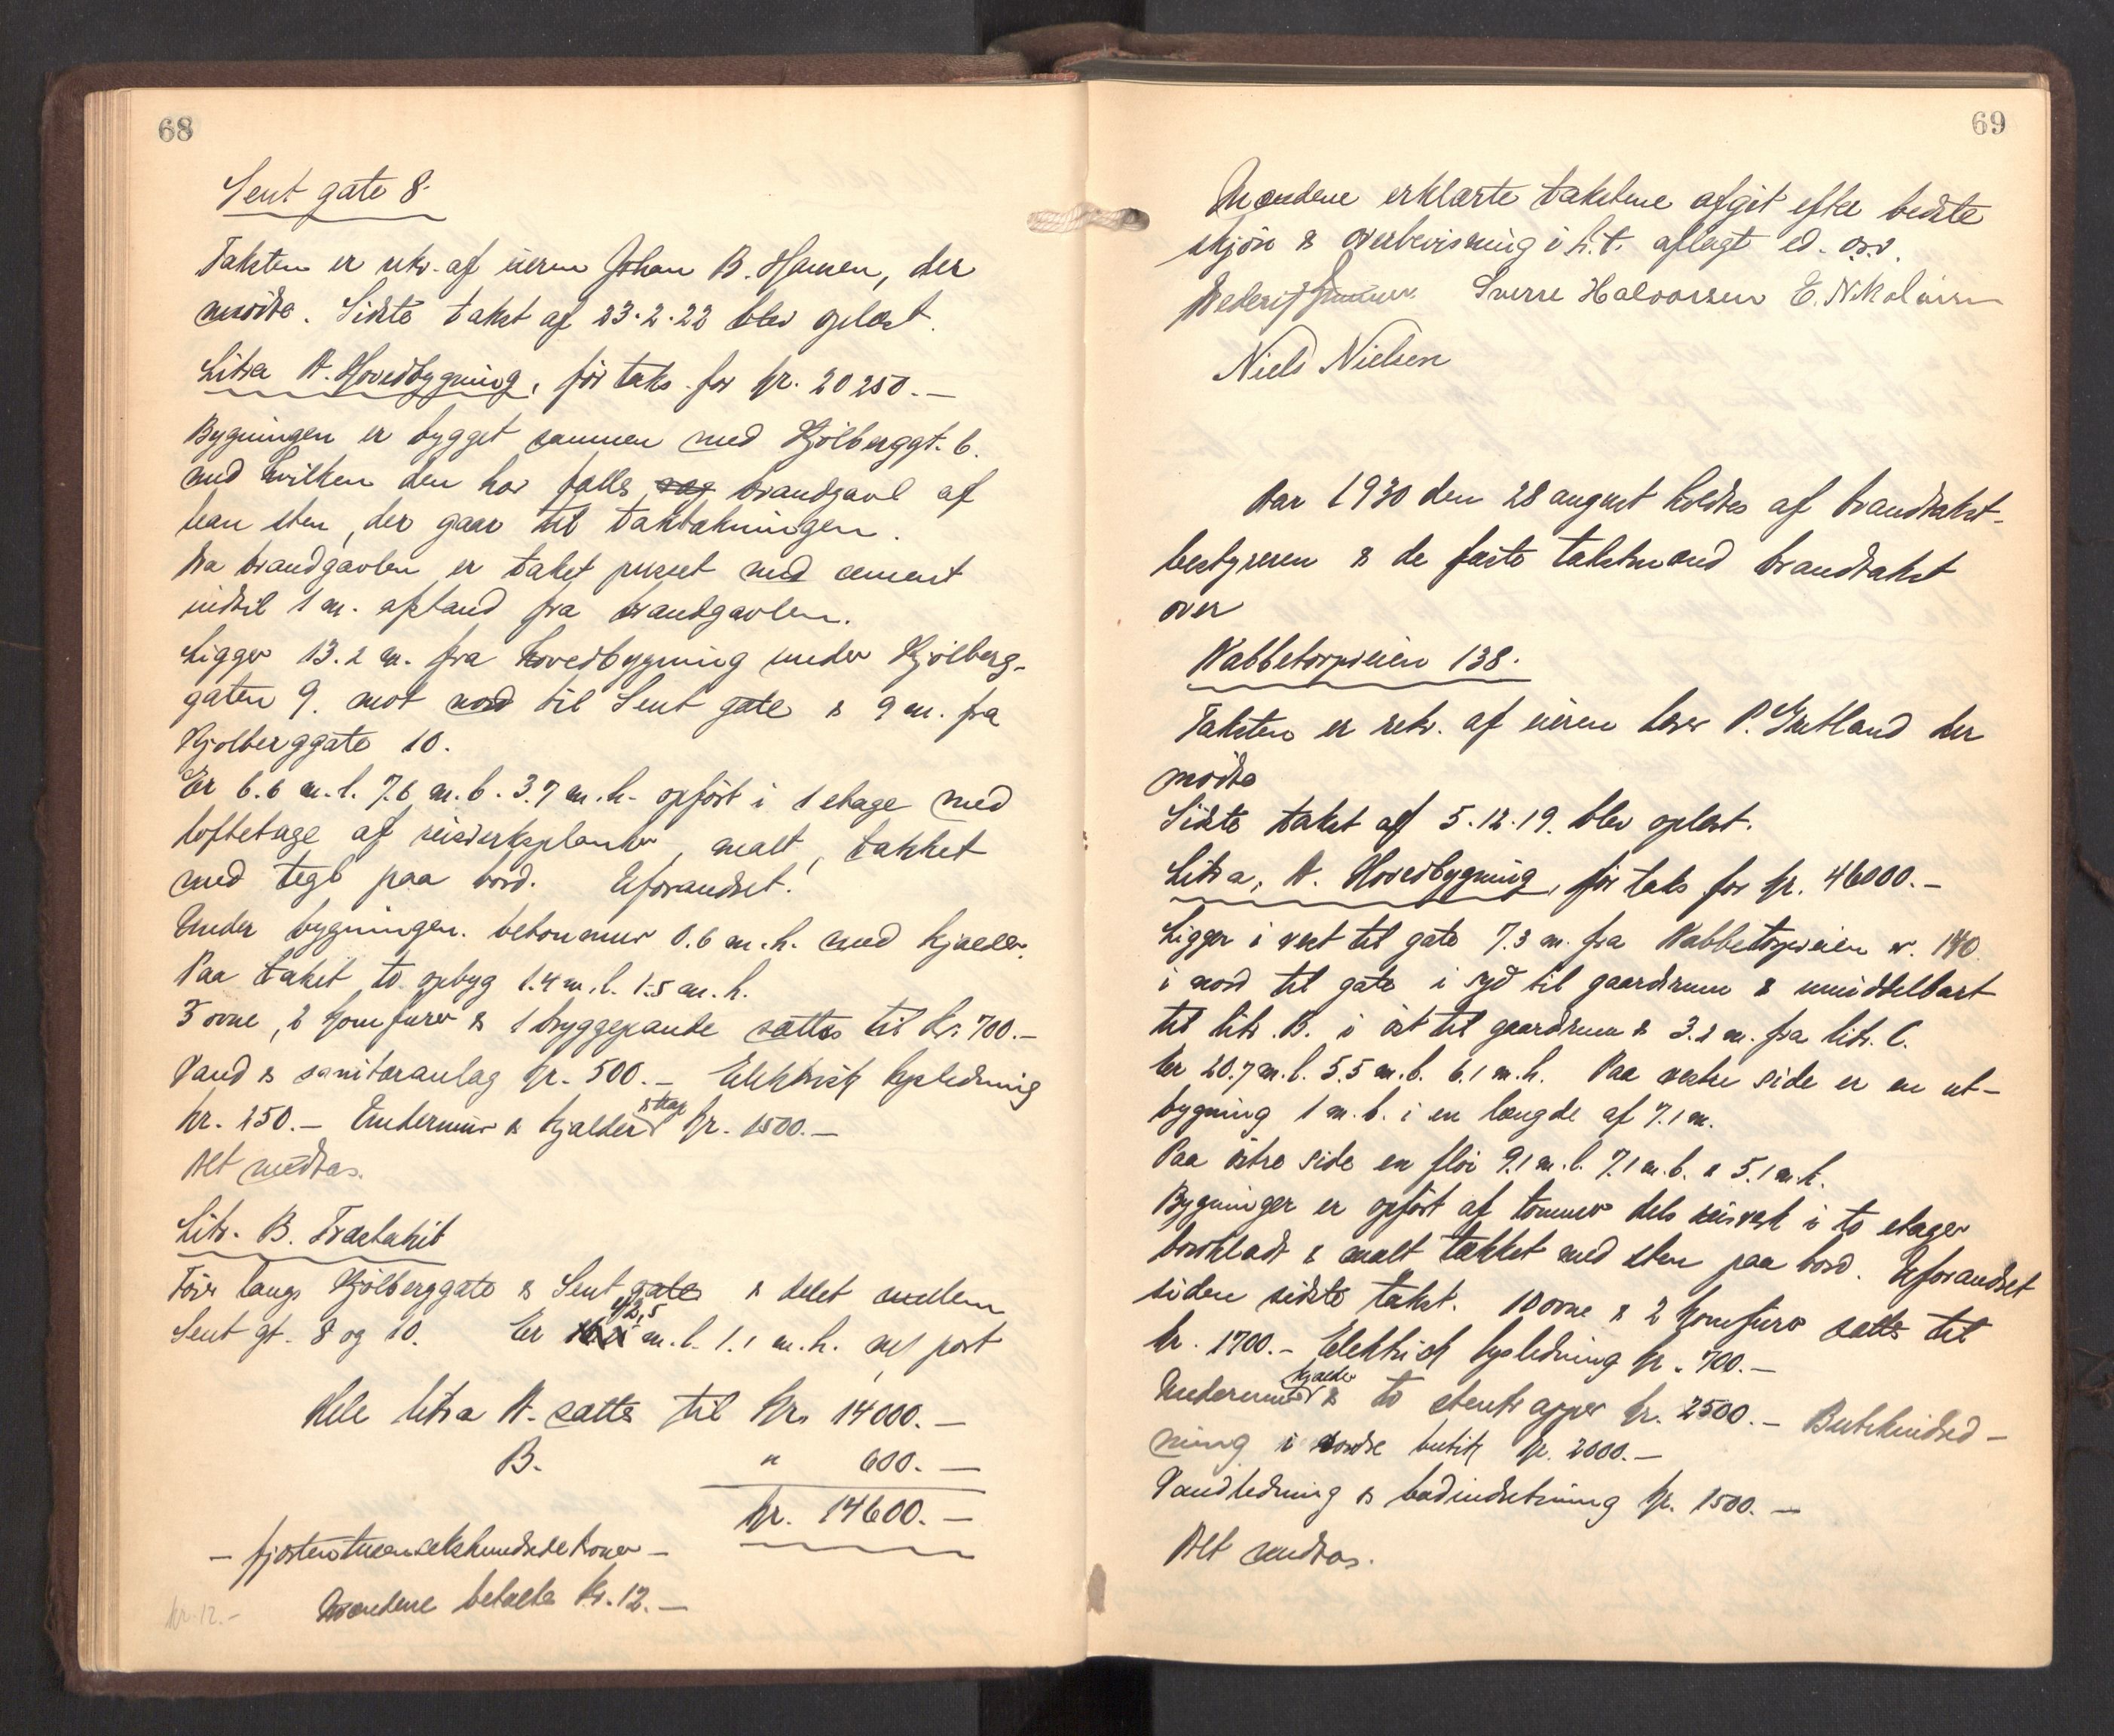 68
Sent gate 8.
Taksten er rekv. af eieren Johan B. Hansen, der
møtte. Sidste takst af 23.2.22 blev oplæst.
Litra A. Hovedbygning, før taks. for kr. 20 250.-
Bygningen er bygget sammen med Kjölberggt. 6.
med hvilken den har fælles brandgavl af
sten, der gaar til taktækningen.
Fra brandgavlen er taket pusset med cement
indtil 1 m. afstand fra brandgavlen.
Ligger 13.2 m. fra hovedbygning under Kjölberg-
gaten 9. mot nord til Sent gate & 9 m. fra
Kjølberggate 10.
Er 6.6 m. l. 7.6 m. b. 3.7 m. h. opført i 1 etage med
loftetage af reisverksplanker, malt, tækket
med tegl paa bord. Uforandret.
Under bygningen betonmur 0.6 m. h. med kjælder.
Paa taket to opbyg 1.4 m. l. 1.5 m. h.
3 ovne, 2 komfurer & 1 bryggepande sættes til kr. 700.-
Vand & sanitæranlæg kr. 500.- Elektrisk lysledning
kr. 250.- Undermur & kjælder & trap kr. 1500.-
Alt medtas.
Litr. B. Træstakit
langs Kjölberggate & Sent gate & delet mellem
Sent gt. 8 og 10. Er 42,5 m. l. 1.1 m. h. m/ port
Hele litra A. sættes til kr. 14 000.-
B. " 600.-
kr. 14 600.-
- fjortentusensekshundrede kroner -
Mændene betalte kr. 12.-
kr. 12.-
69
Mændene erklærte takstene afgit efter bedste
skjøn & overbevisning i h.t. aflagt ed. o.s.v.
Sverre Halvorsen E. Nikolaisen
Niels Nielsen
Aar 1930 den 28 august holdtes af brandtakst-
bestyreren & de faste takstmænd brandtakst
over
Nabbetorpveien 138.
Taksten er rekv. af eieren P. Gretland der
møtte
Sidste takst af 5.12.19. blev oplæst.
Litra, A. Hovedbygning, før taks for kr. 46000.-
Ligger i vest til gate 7.3 m. fra Nabbetorpveien nr. 140
i nord til gate i syd til gaardsrum & umiddelbart
til litr. B. i øst til gaardsrum & 3.2 m. fra litr. C.
Er 20.7 m. l. 5.5 m. b. 6.1 m. h. Paa vestre side er en ut-
bygning 1 m. b. i en længde af 7.1 m.
Paa østre side en fløi 9.1 m. l. 7.1 m. b. & 5.1 m. h.
Bygninger er opført af tømmer dels reisverk i to etager
bordklædt & malt tækket med sten paa bord. Uforandret
siden sidste takst. 10 ovne & 2 komfurer sættes til
kr. 1700.- Elektrisk lysledning kr. 700.-
Undermur kjælder & to stentrapper kr. 2500.- Butikindred-
ning i søndre butik kr. 2000.-
Vandledning & badindretning kr. 1500.-
Alt medtas.